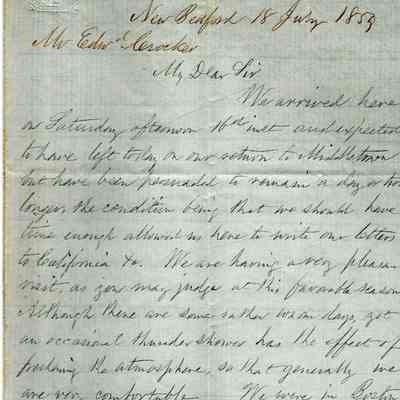 New Bedford 18 July 1859
Mr Edw. Crocker
My Dear Sir
We arrived here
on Saturday afternoon 16th inst and expected
to have left today on our return to Middletown
but have been persuaded to remain a day or two
longer, the condition being that we should have
time enough allowed us here to write our letters
to California &c. We are having a very pleasa
visit as you may judge at this favorable season
Although there are some rather warm days, yet
an occasional thunder shower has the effect of
freshening the atmosphere, so that generally we
are very comfortable. We were in Boston